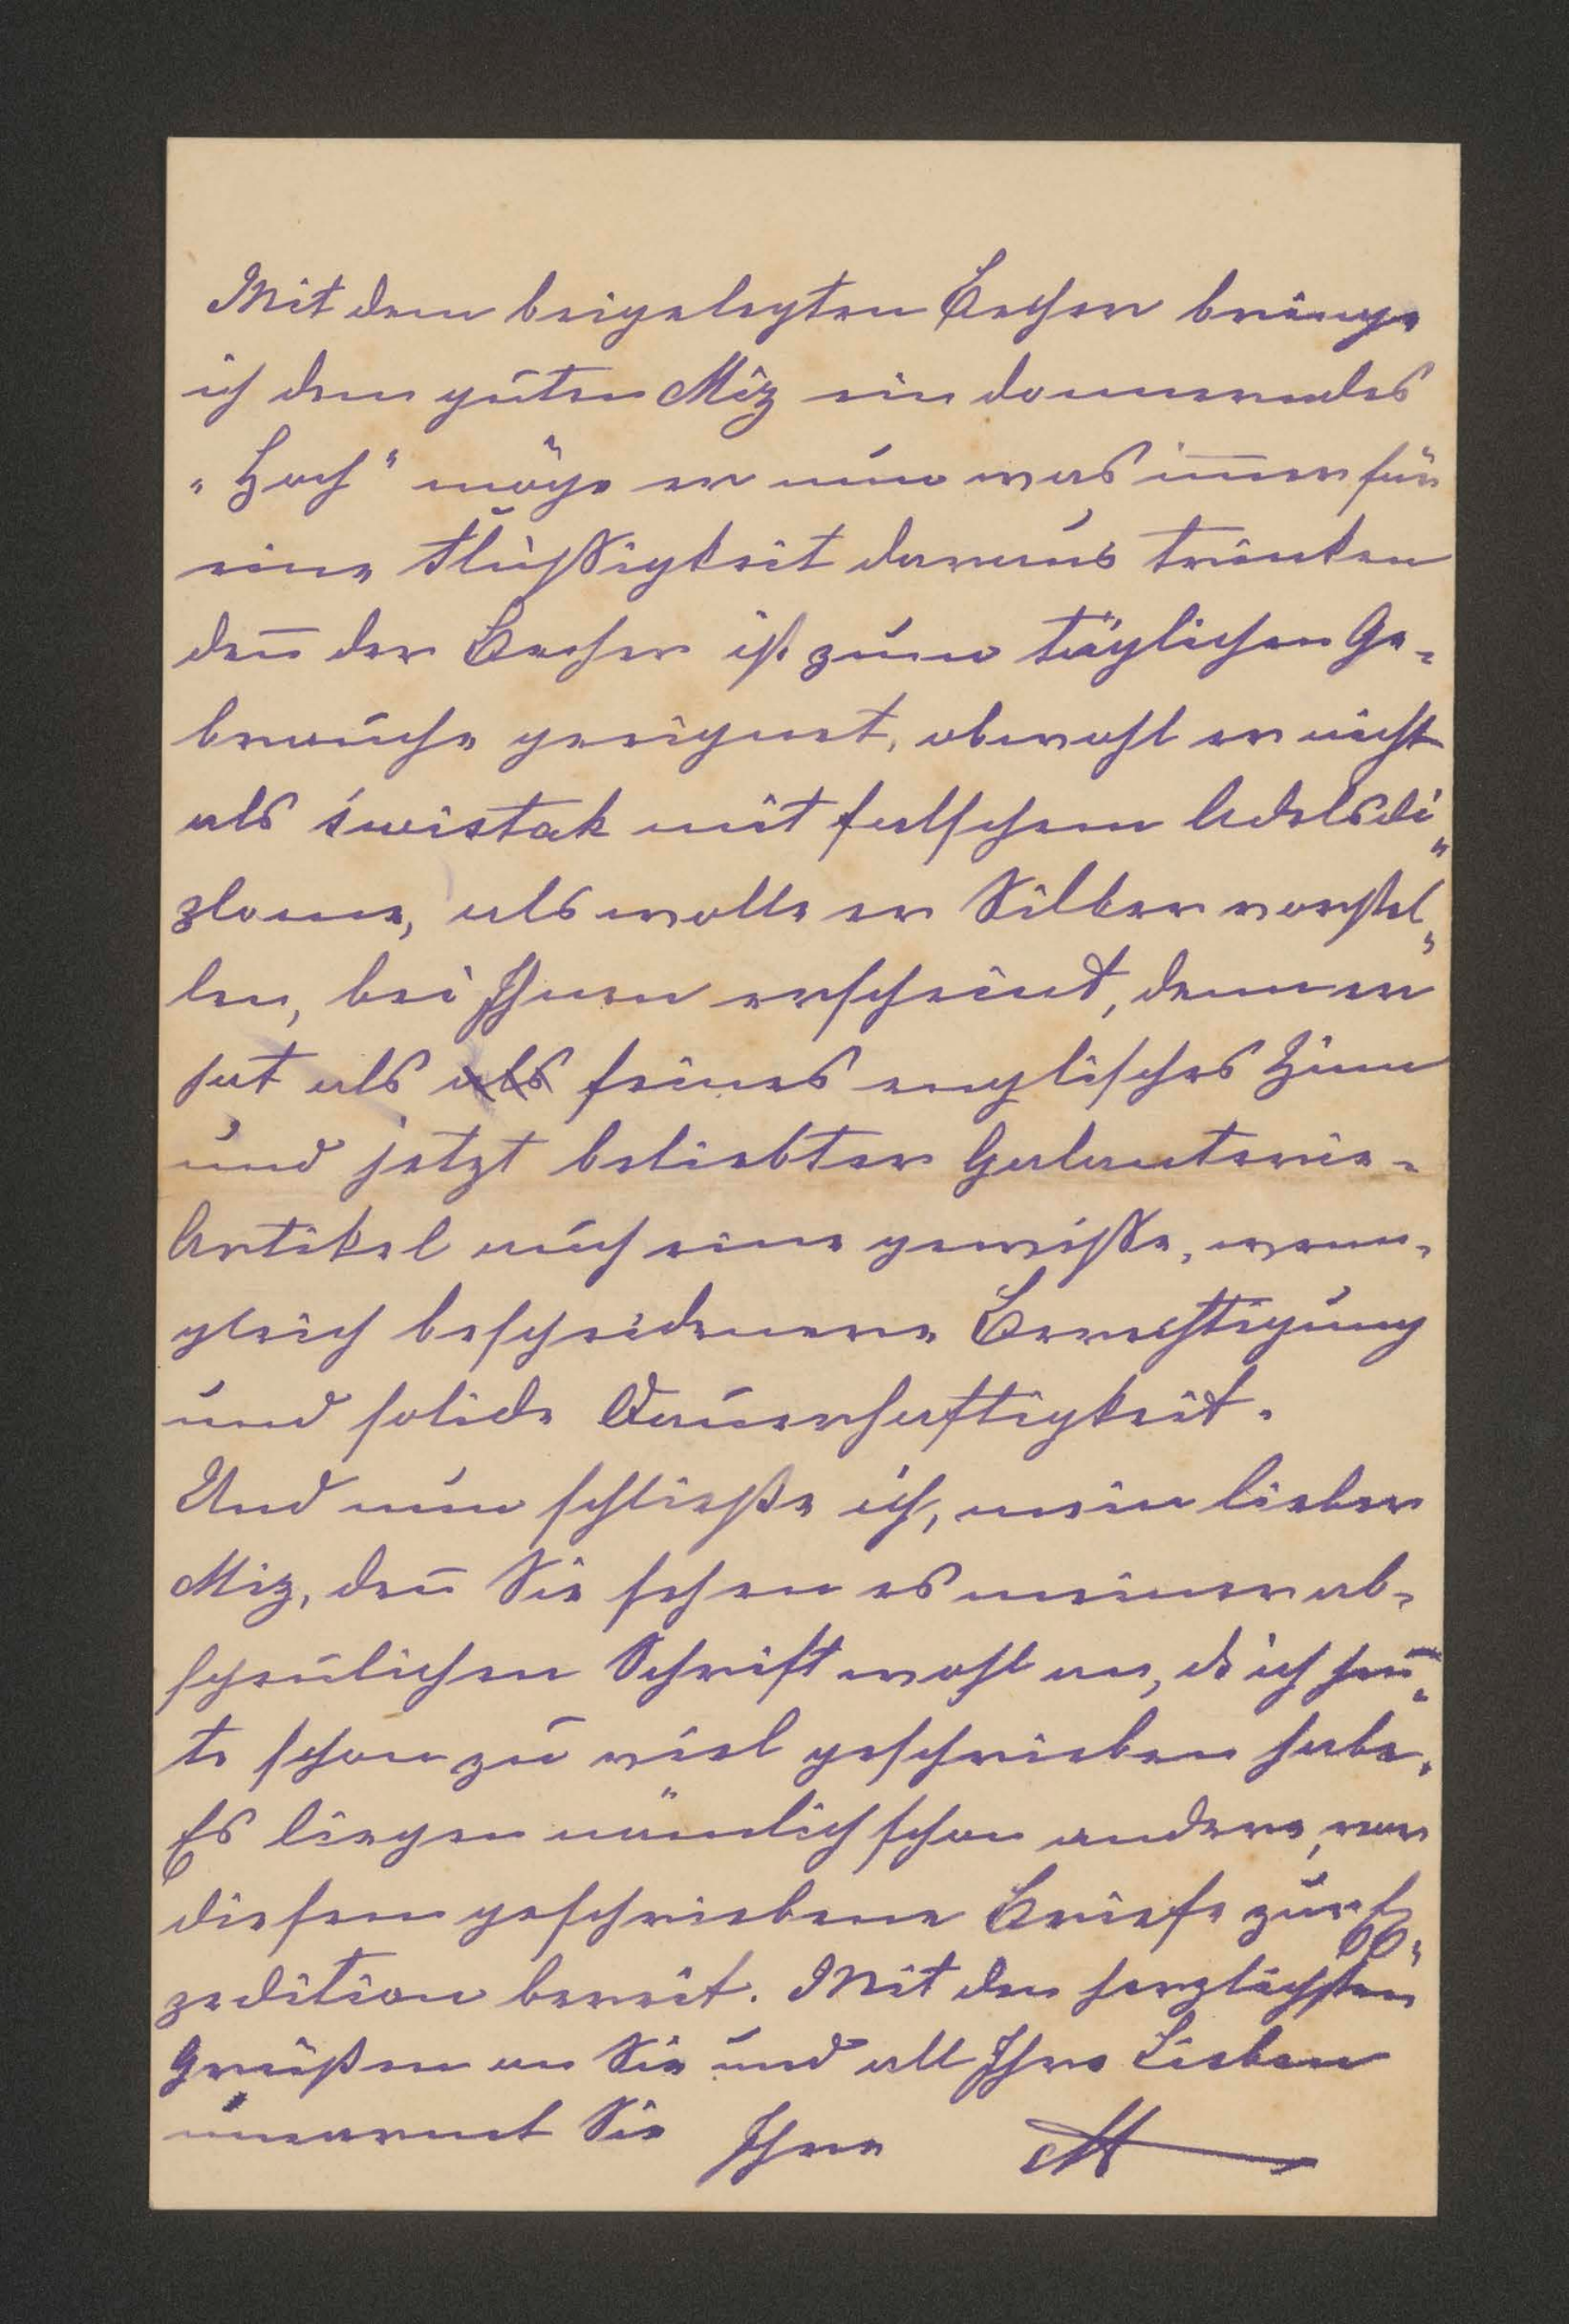 Mit dem beigelegten Becher bringe
ich dem guten Miz ein donnerndes
„Hoch“ möge er nun was im̄er für
eine Flüßigkeit daraus trinken
den̄ der Becher ist zum täglichen Ge-
brauche geeignet, obwohl er nicht
als świstak mit falschem Adelsdi-
plome, als wolle er Silber vorstel-
len, bei Ihnen erscheint, denn er
hat als als feines englisches Zinn
und jetzt beliebter Galanterie-
Artikel auch eine gewisse, wenn-
gleich bescheidenere Berechtigung
und solide Dauerhaftigkeit.
Und nun schließe ich, mein lieber
Miz, den̄ Sie sehen es meiner ab-
scheulichen Schrift wohl an, ds ich heu-
te schon zu viel geschrieben habe.
Es liegen nämlich schon andere, vor
diesem geschriebene Briefe zur Ex-
pedition bereit. Mit den herzlichsten
Grüßen an Sie und all Ihre Lieben
umarmt Sie Ihre M